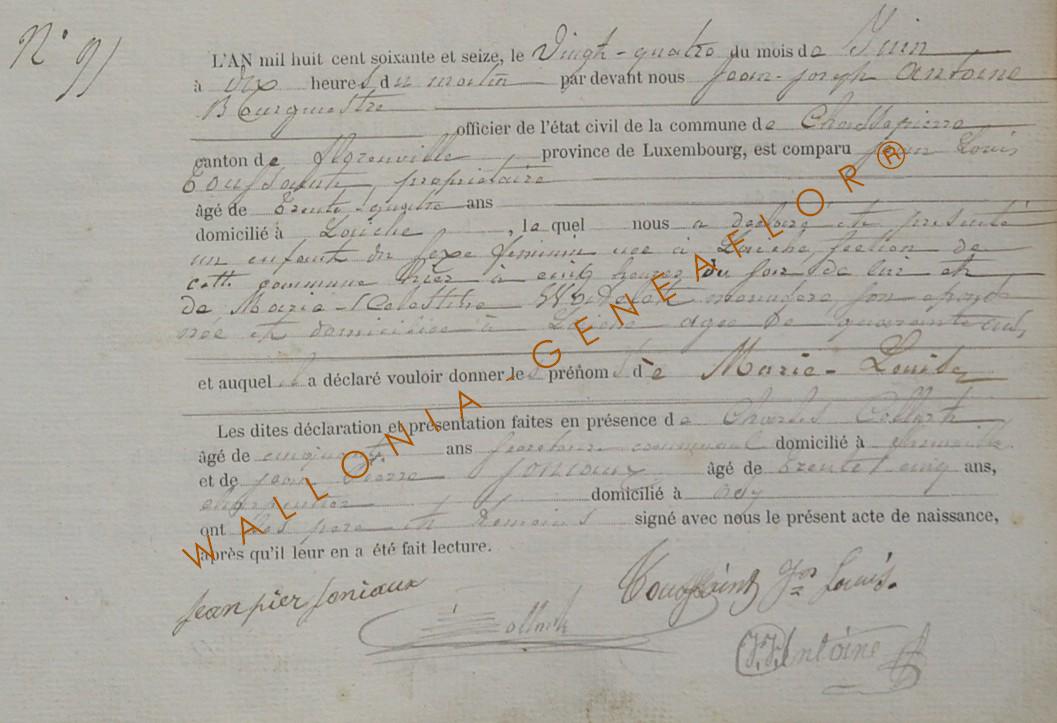 N° 91
L'AN mil huit cent soixante et seize, le Vingt-quatre du mois de Juin
à dix heures du matin par devant nous Jean-Joseph Antoine
Bourgmestre
officier de l'état civil de la commune de Chassepierre
canton de Florenville province de Luxembourg, est comparu Jean Louis
Toussaint, propriétaire
âgé de trente-quatre ans
domicilié à Laiche, le quel nous a déclaré et présenté
un enfant du sexe féminin née à Laiche section de
cette commune hier à cinq heures du soir de lui et
de Marie-Célestine menagere son épouse
née et domiciliée à Laiche agée de quarante ans
et auquel il a déclaré vouloir donner le prénom de Marie-Louise
Les dites déclaration et présentation faites en présence de Charles Collart
âgé de cinquante ans secrétaire communal domicilié à
et de Jean Pierre Joniaux âgé de trente cinq ans,
charpentier domicilié à
ont les père et témoins signé avec nous le présent acte de naissance,
après qu'il leur en a été fait lecture.
jean pier joniaux
Toussaint Jn Louis.
Collart
J.J. Antoine
WALLONIA - GENEAFLOR®